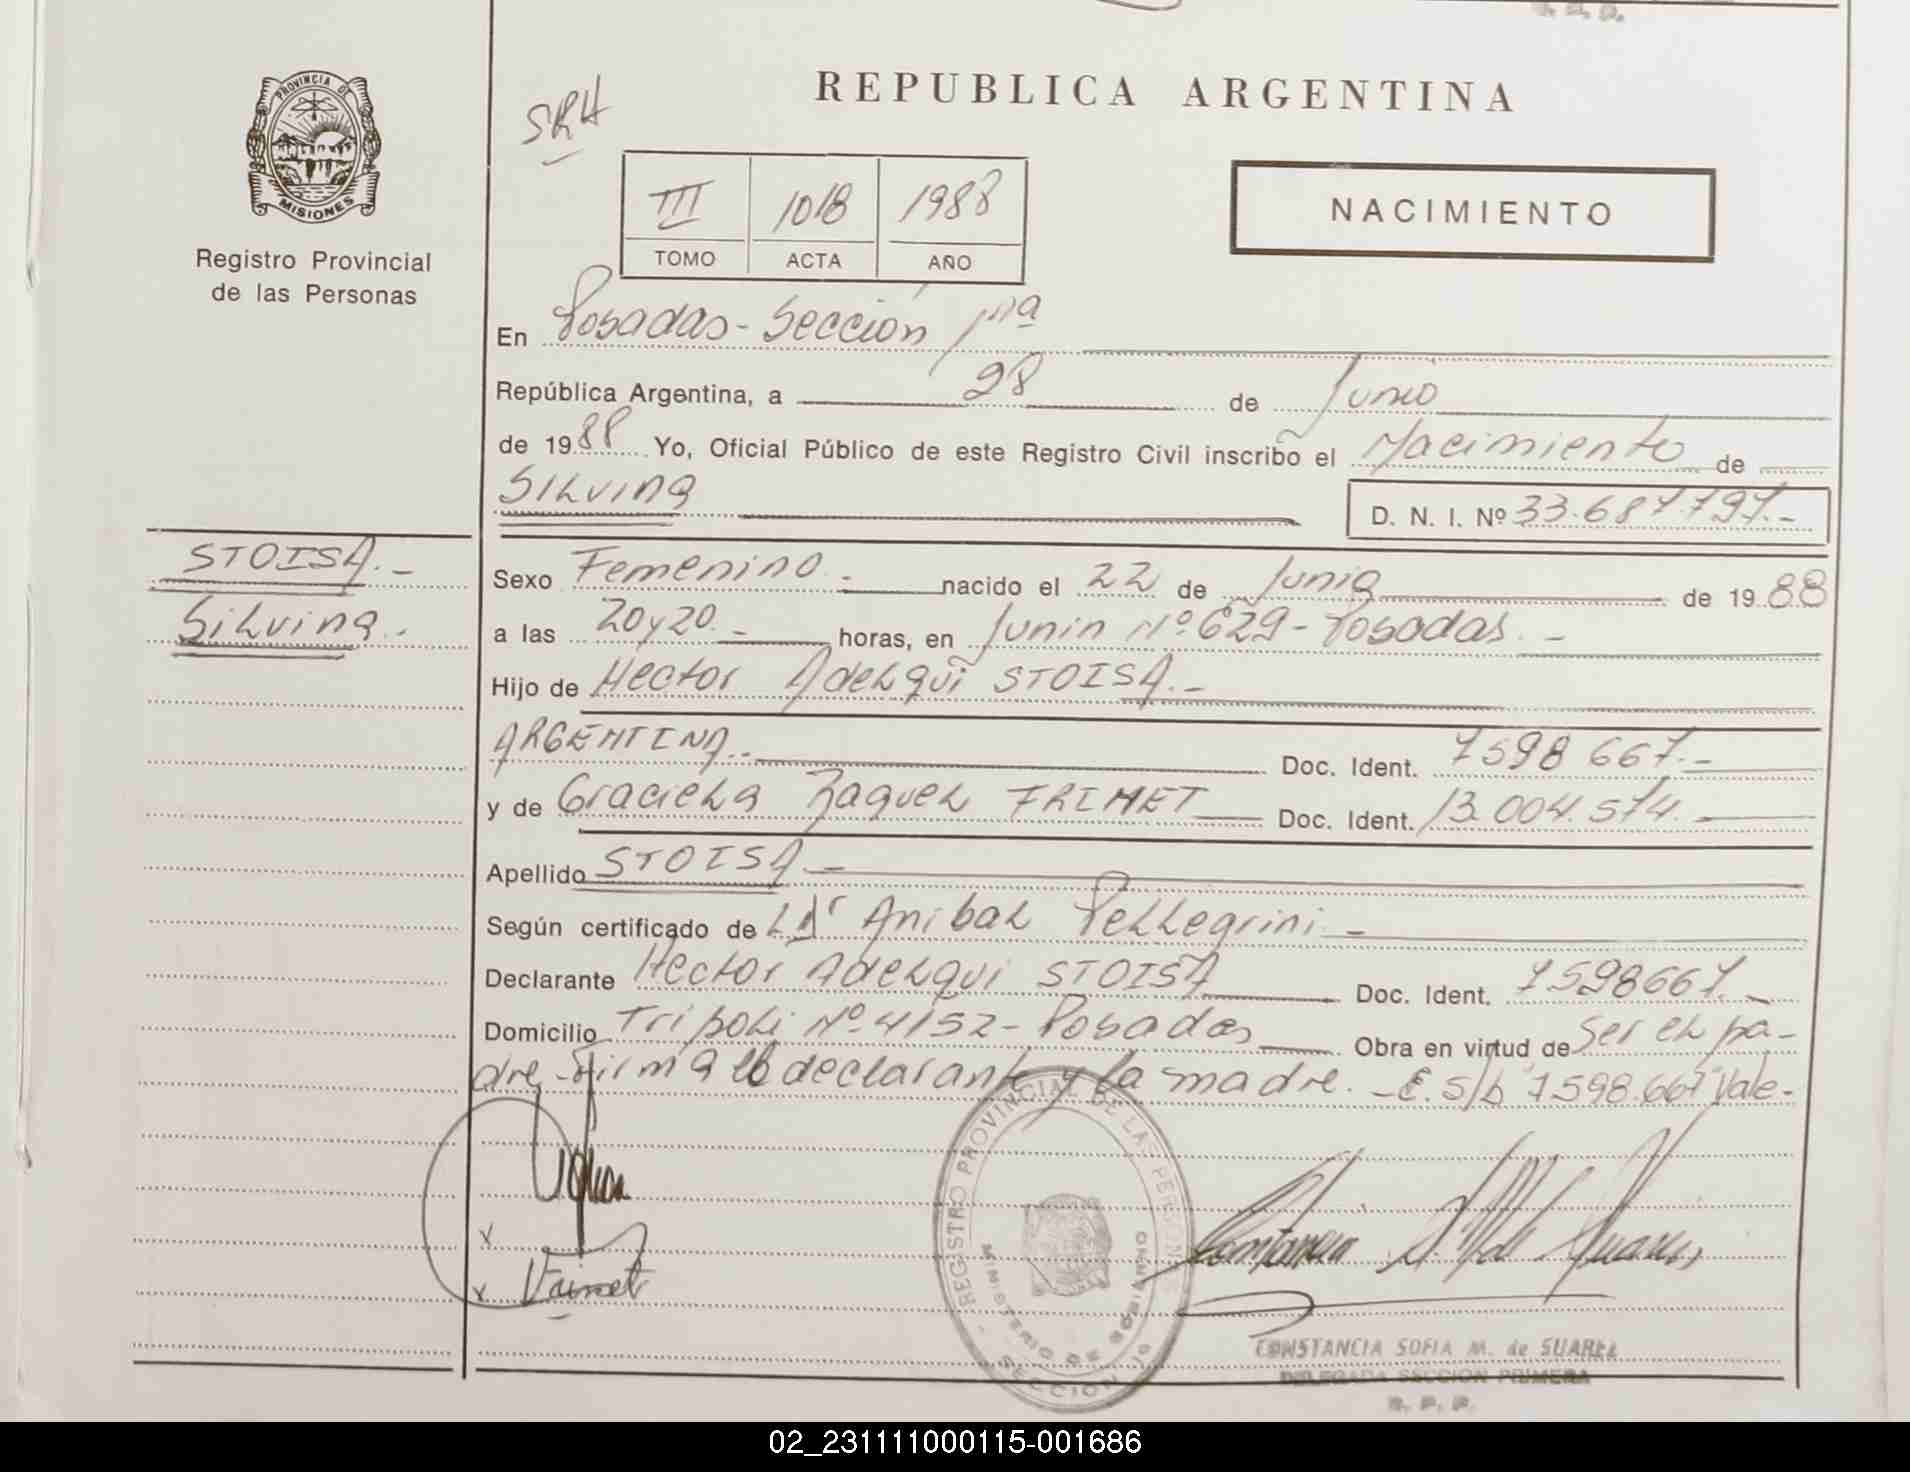 S. R. P.
PROVINCIA DE
MISIONES
Registro Provincial
de las Personas
SRH
REPUBLICA ARGENTINA
III 1018 1988
TOMO ACTA AÑO
NACIMIENTO
En Posadas - Sección 1ra
República Argentina, a 28 de Junio
de 1988 Yo, Oficial Público de este Registro Civil inscribo el Nacimiento de
Silvina D. N. I. Nº 33.687.797.-
STOISA.-
Silvina.
Sexo Femenino.- nacido el 22 de Junio de 1988
a las 20y20.- horas, en Junin Nº 629 - Posadas.-
Hijo de Hector Adelqui STOISA.-
ARGENTINA.- Doc. Ident. 7598 667.-
y de Graciela Raquel FRIMET Doc. Ident. 13.004.574.-
Apellido STOISA.-
Según certificado de Anibal Pellegrini.-
Declarante Hector Adelqui STOISA Doc. Ident. 7598667.-
Domicilio Tripoli Nº 4152 - Posadas Obra en virtud de Ser el pa-
dre - Firma el declarante y la madre. - E. S/b "7598.667" Vale-
x
x
REGISTRO PROVINCIAL DE LAS PERSONAS
MINISTERIO DE GOBIERNO
SECCION 1a
CONSTANCIA SOFIA M. de SUAREZ
DELEGADA SECCION PRIMERA
R. P. P.
02_231111000115-001686